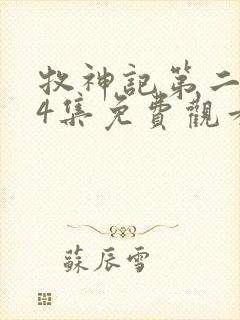 牧神記第二
4集免費觀
蘇辰雪